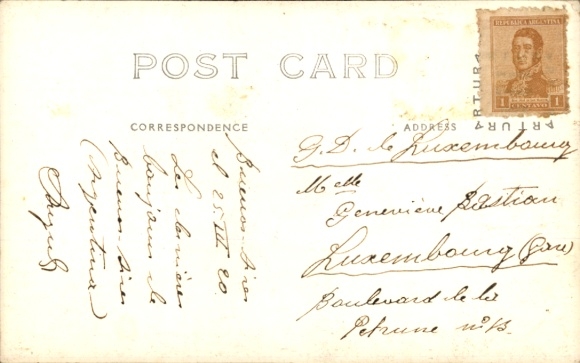 POST CARD
CORRESPONDENCE
ADDRESS
REPUBLICA ARGENTINA
1 CENTAVO 1
ARTURA
ARTURA
Buenos-Aires
el 25. III 20.
Les dernières
bonjours de
Buenos Aires
(Argentina)
G. D. de Luxembourg
Melle
Geneviève Bastian
Luxembourg (Gare)
Boulevard de la
Petrusse nº 13.